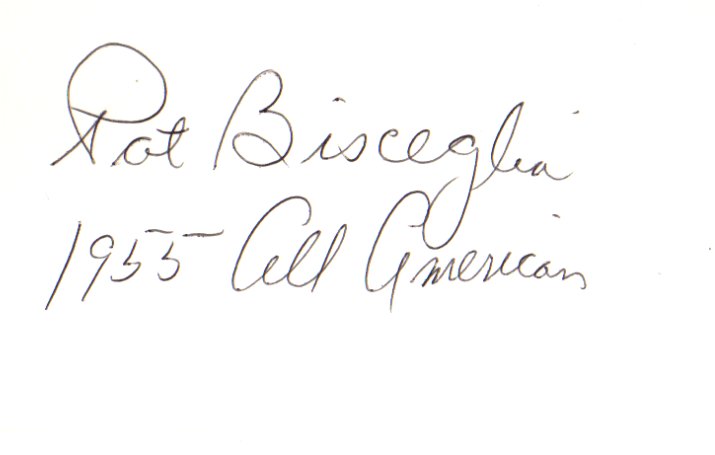 Pat Bisceglia
1955 All American